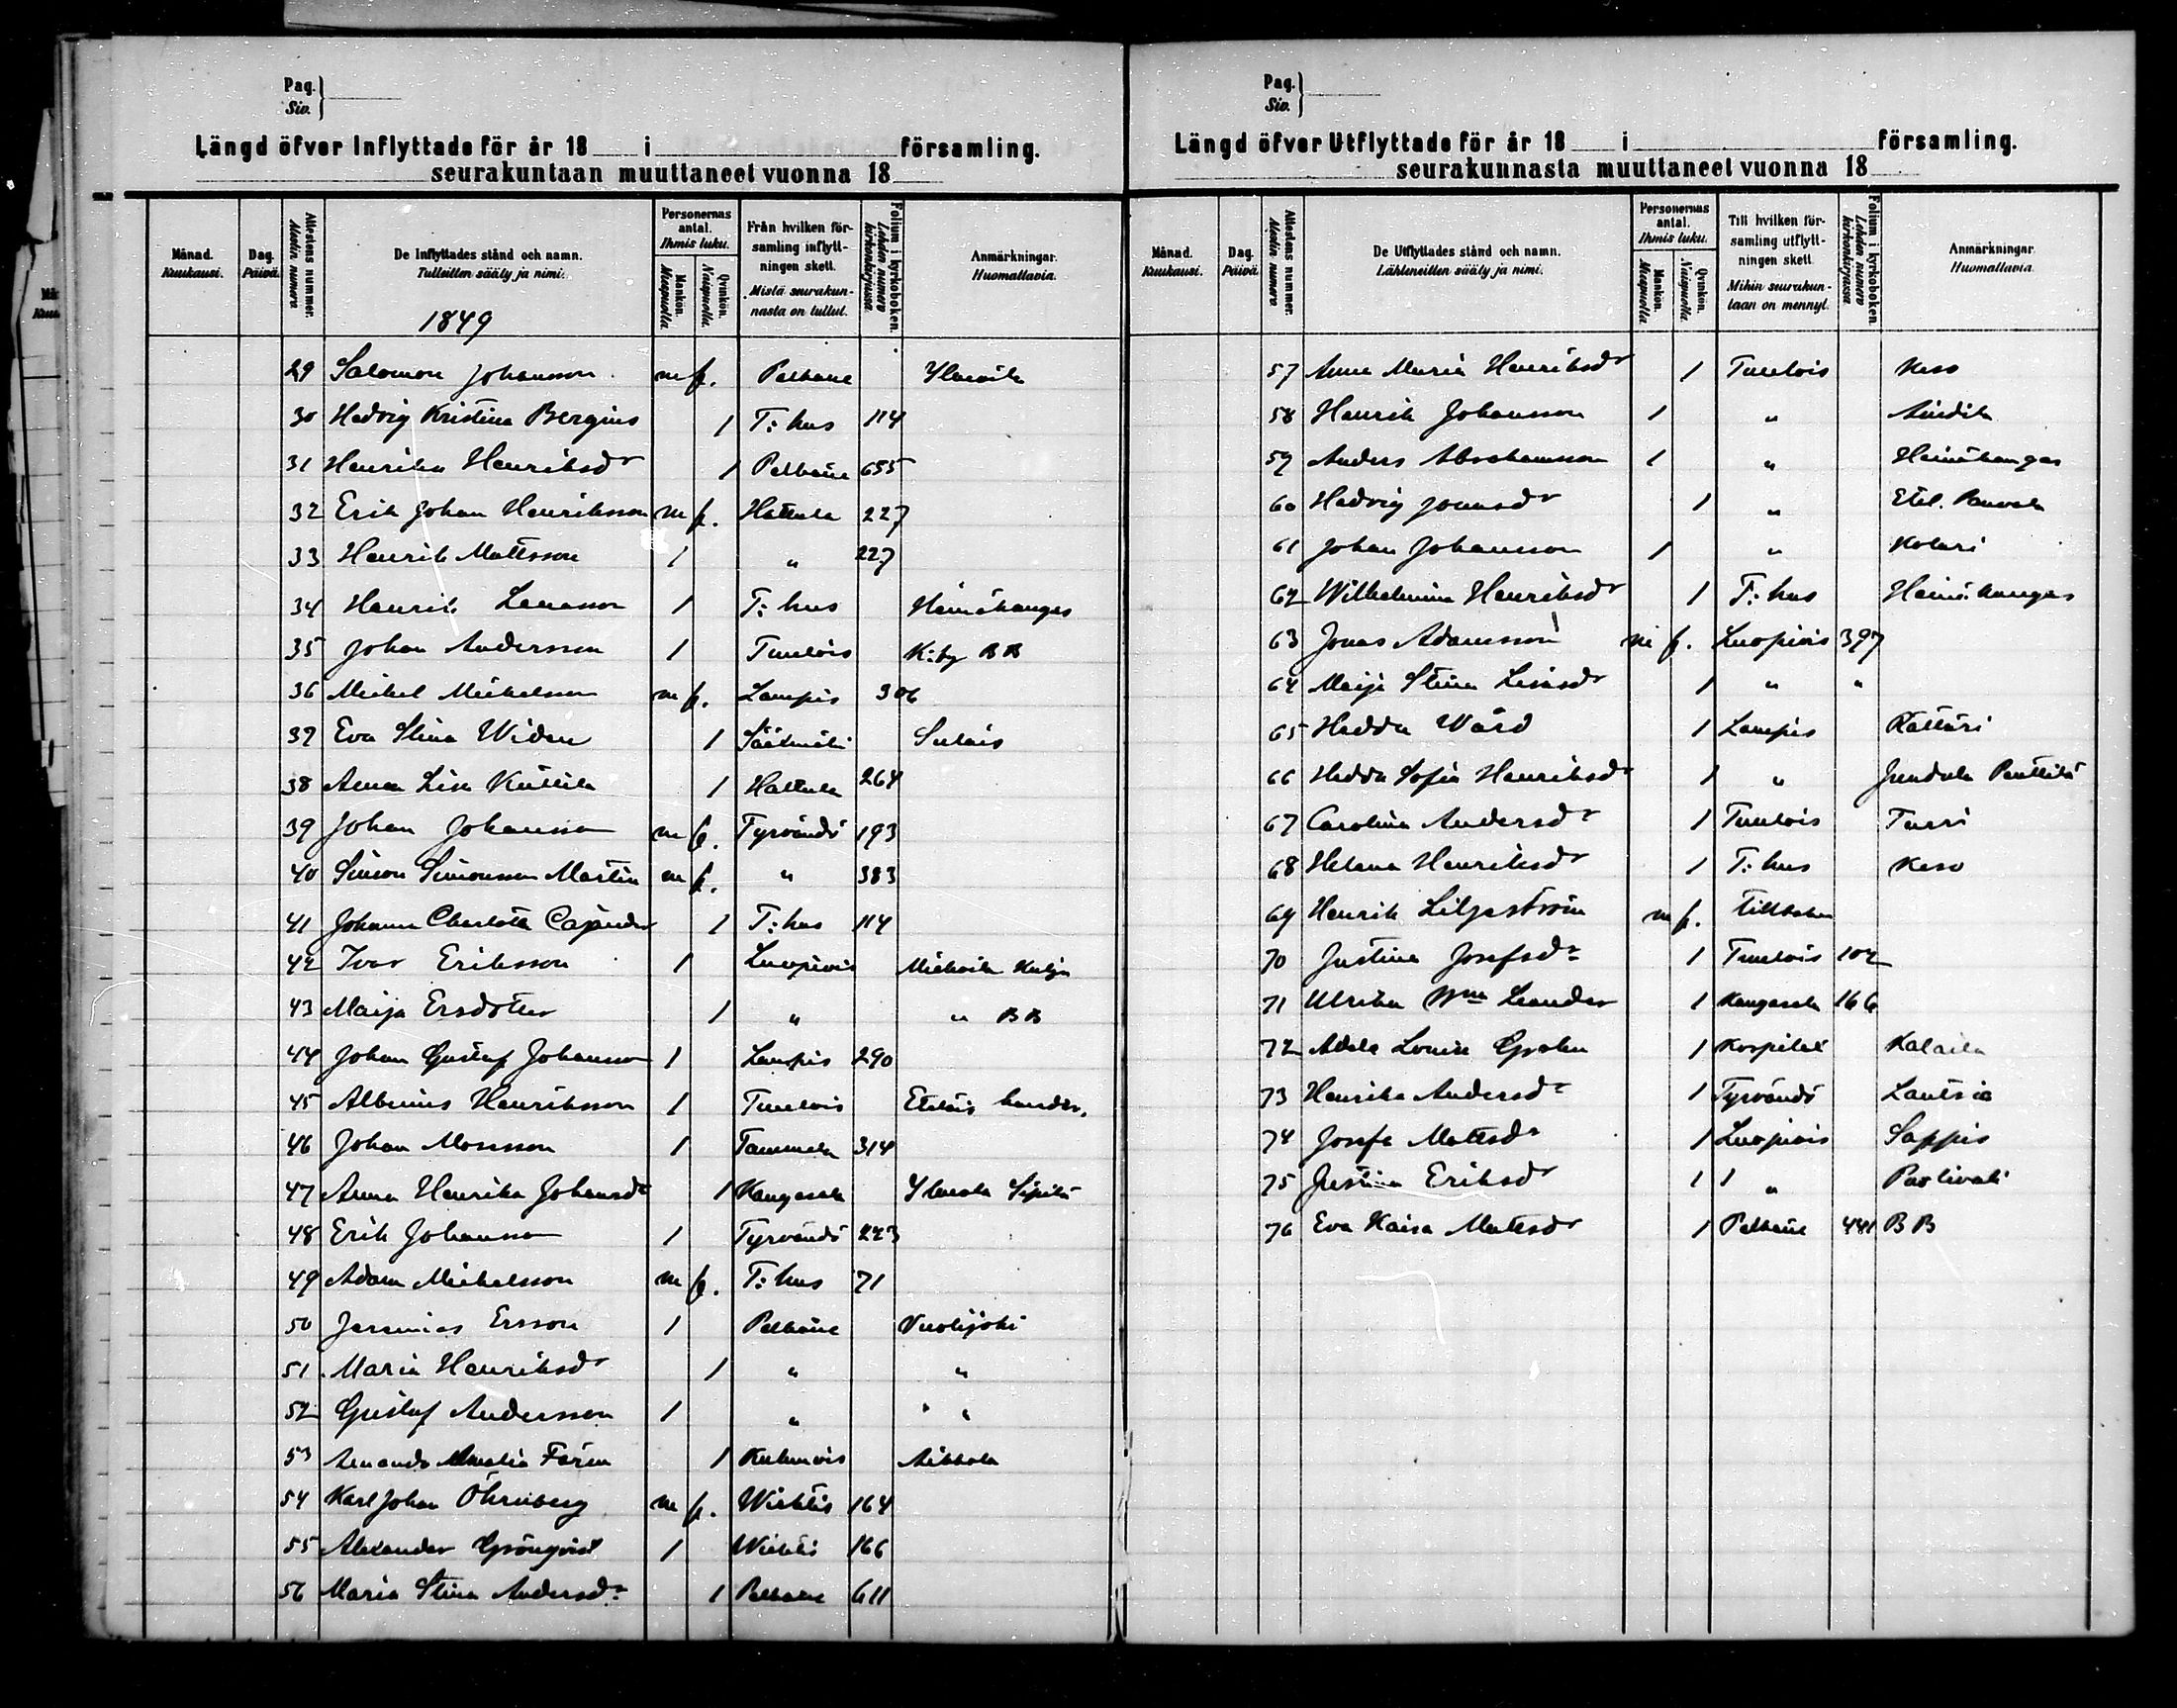 Pag.
Siv.
Längd öfver Inflyttade för år 18 i församling.
seurakuntaan muuttaneet vuonna 18
Månad. Kuukausi.
Dag. Päivä.
Attestens nummer. Alestin numero
De Inflyttades stånd och namn. Tulleitten sääty ja nimi.
Personernas antal. Ihmis luku.
Mankön. Miespuolia
Qvinkön. Naispuolia.
Från hvilken församling inflyttningen skett. Mistä seurakunnasta on tullut.
Folium i kyrkoboken. Lehden numero kirkonkirjassa
Anmärkningar. Huomattavia.
1849
29 Salomon Johansson m f. Pelkäne
30 Hedvig Kristina Bergius 1 T:hus 114
31 Henrika Henriksdr 1 Pelkäne 655
32 Erik Johan Henriksson m f. Hattula 227
33 Henrik Mattsson 1 " 227
34 Henrik 1 T:hus Heinäkangas
35 Johan Andersson 1 Tuulois K:by BB
36 Mickel Mickelsson m f. Lampis 306
37 Eva Stina Widen 1 Sääksmäki
38 Anna Lisa 1 Hattula 264
39 Johan Johansson m f. Tyrvändö 193
40 Simon Simonsson Martin m f. " 383
41 Johanna Charlotta Cajander 1 T:hus 114
42 Ivar Eriksson 1 Luopiois
43 Maija Ersdotter 1 " " BB
44 Johan Gustaf Johansson 1 Lampis 290
45 Albinus Henriksson 1 Tuulois
46 Johan Mosesson 1 Tammela 314
47 Anna Henrika Johansdr 1 Kangasala Sipilä
48 Erik Johansson 1 Tyrvändö 223
49 Adam Mickelsson m f. T:hus 71
50 Jeremias Ersson 1 Pelkäne Vuolijoki
51 Maria Henriksdr 1 " "
52 Gustaf Andersson 1 " " "
53 Amanda Amalia 1 Kuhmois
54 Karl Johan Öhrnberg m f. Wichtis 164
55 Alexander Grönqvist 1 Wichtis 166
56 Maria Stina Andersdr 1 Pelkäne 611
Pag.
Siv.
Längd öfver Utflyttade för år 18 i församling.
seurakunnasta muuttaneet vuonna 18
Månad. Kuukausi.
Dag. Päivä.
Attestens nummer. Alestin numero
De Utflyttades stånd och namn. Lähteneitten sääty ja nimi.
Personernas antal. Ihmis luku.
Mankön. Miespuolia
Qvinkön. Naispuolia.
Till hvilken församling utflyttningen skett. Mihin seurakuntaan on mennyt.
Folium i kyrkoboken. Lehden numero kirkonkirjassa
Anmärkningar. Huomattavia.
57 Anna Maria Henriksdr 1 Tuulois Keso
58 Henrik Johansson 1 "
59 Anders Abrahamsson 1 " Heinäkangas
60 Hedvig Jonasdr 1 "
61 Johan Johansson 1 " Kolari
62 Wilhelmina Henriksdr 1 T:hus Heinäkangas
63 Jonas Adamsson m f. Luopiois 397
64 Maija Stina 1 " "
65 Hedda Wård 1 Lampis Kättäri
66 Hedda Sofia Henriksdr 1 " Penttilä
67 Carolina Andersdr 1 Tuulois
68 Helena Henriksdr 1 T:hus Keso
69 Henrik Liljeström m f.
70 Justina Josefsdr 1 Tuulois 102
71 Ulrika Leander 1 Kangasala 166
72 Adela Lovisa 1
73 Henrika Andersdr 1 Tyrvändö Lautsia
74 Josefa Mattsdr 1 Luopiois Sappis
75 Justina Eriksdr 1 1 "
76 Eva Kaisa Mattsdr 1 Pelkäne 441 BB